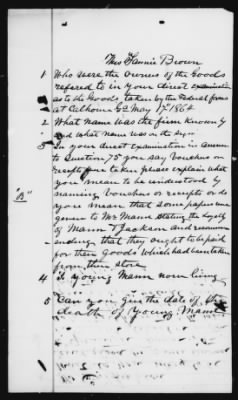 Miss Fannie Brown
1 Who were the owners of the Goods
refered to in your direct examination
as to the Goods taken by the Federal forces
at Calhoun Ga May 17 1864
2 What name was the firm known by
and what name was on the sign
3 In your direct examination in answer
to Question 75 you say vouchers or
receipts were taken please explain what
you mean to be understood by
naming vouchers or receipts or do
you mean that some paper was
given to Mr Mann stating the loyalty
of Mann & Jackson and recomm
ending that they ought to be paid
for their goods which had been taken
from their store
"B"
4 Is young Mann now living
5 Can you give the date of the
death of young Mann